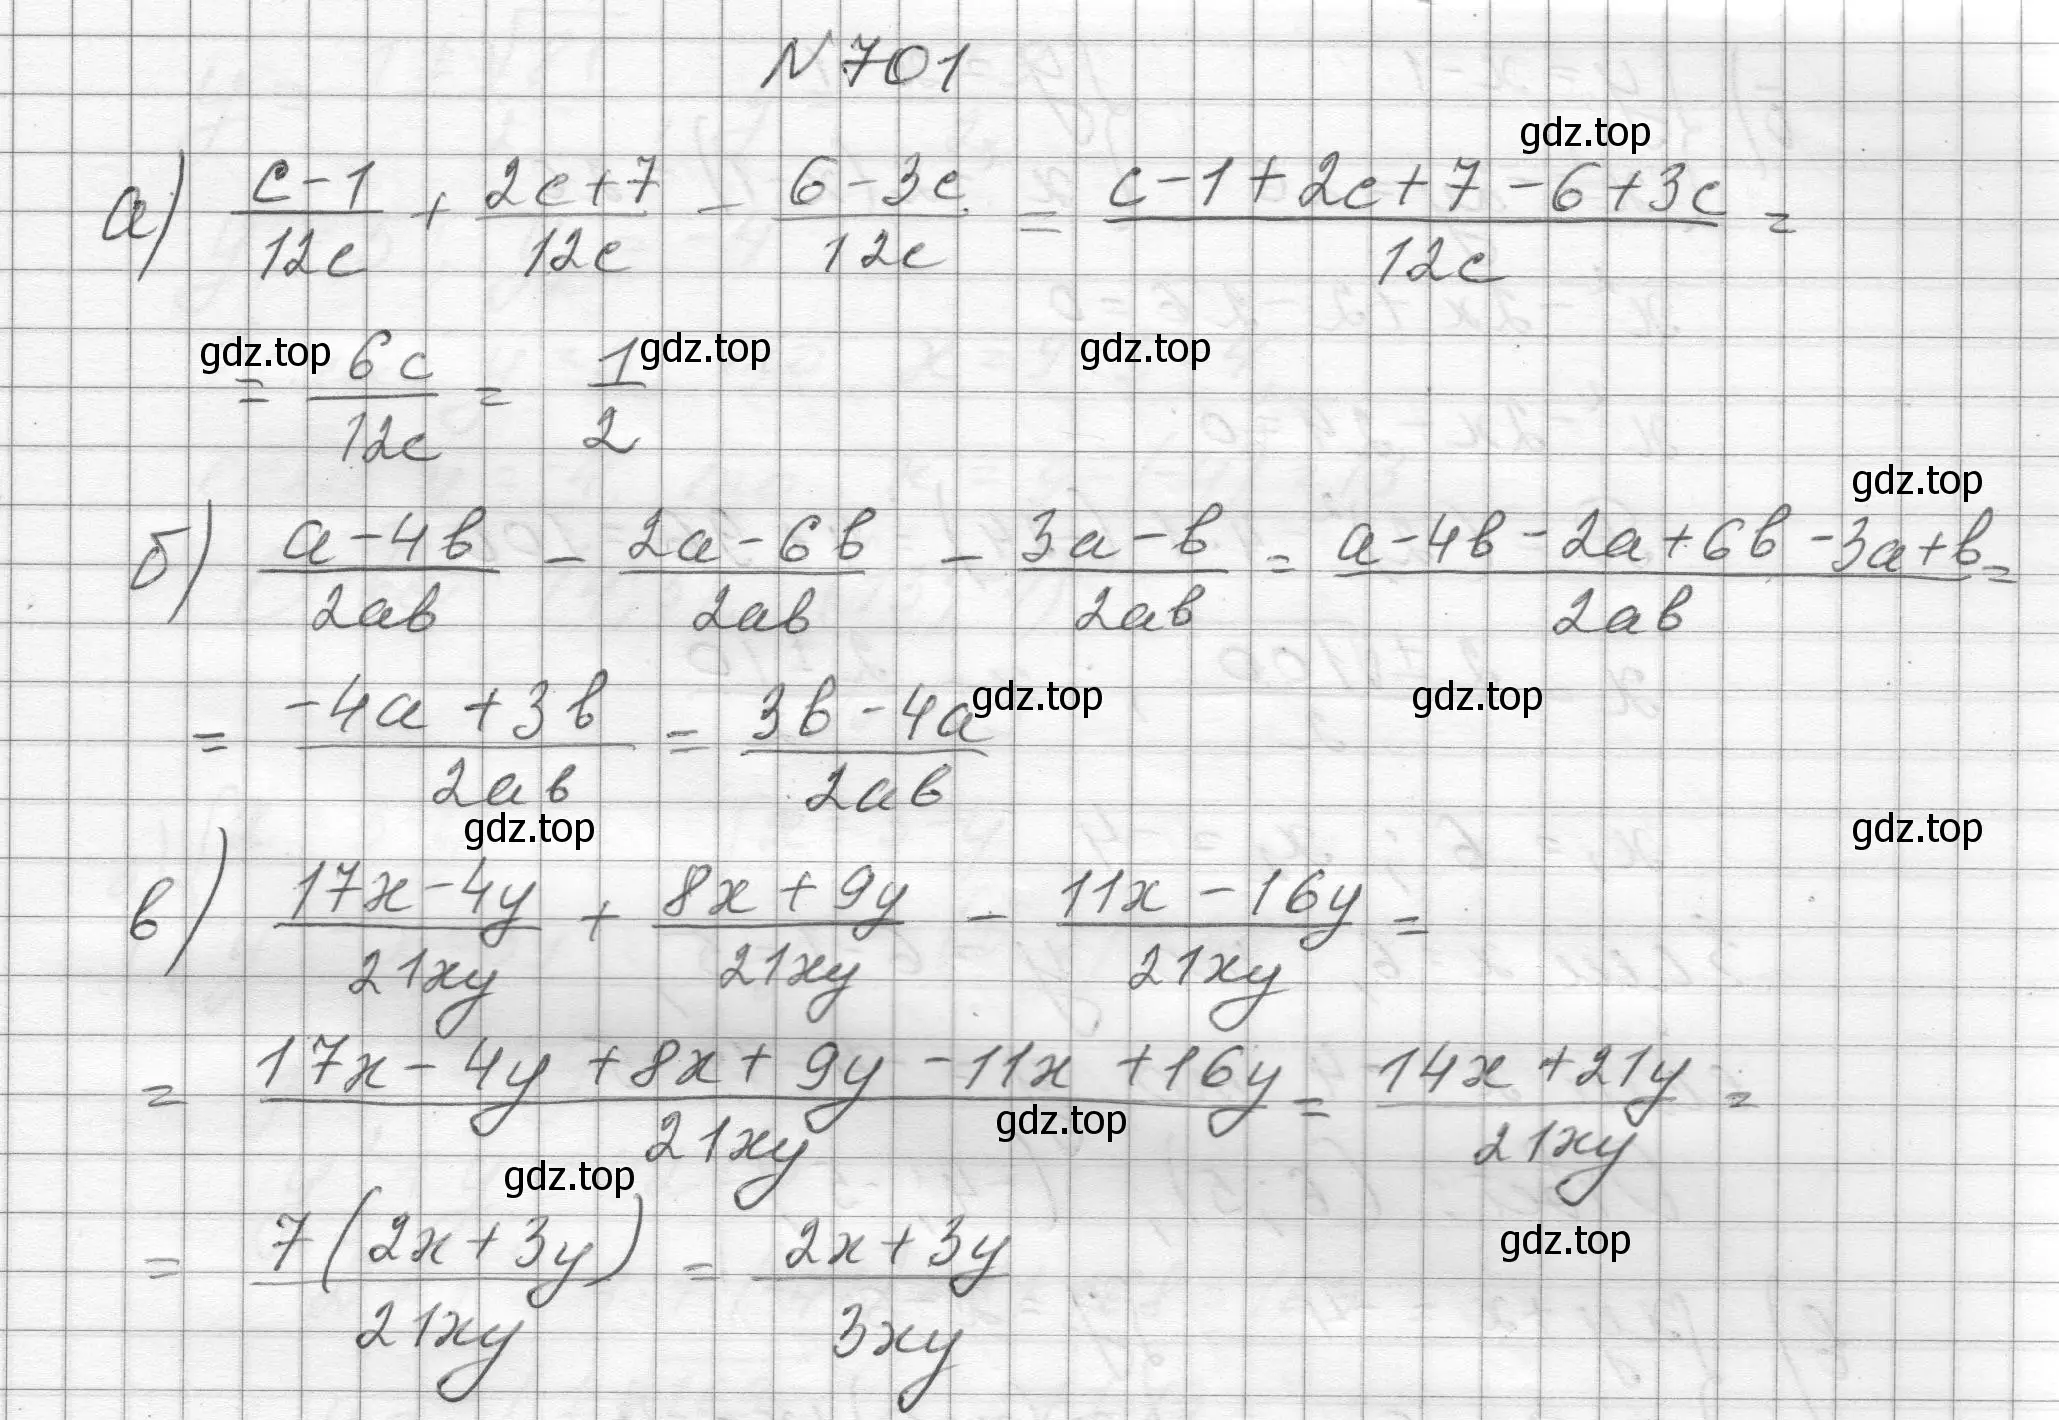 N 701
gdz.top
а) (c-1)/(12c) + (2c+7)/(12c) - (6-3c)/(12c) = (c-1+2c+7-6+3c)/(12c) =
gdz.top gdz.top gdz.top
= (6c)/(12c) = 1/2
gdz.top
б) (a-4b)/(2ab) - (2a-6b)/(2ab) - (3a-b)/(2ab) = (a-4b-2a+6b-3a+b)/(2ab) =
= (-4a+3b)/(2ab) = (3b-4a)/(2ab) gdz.top gdz.top
gdz.top gdz.top
в) (17x-4y)/(21xy) + (8x+9y)/(21xy) - (11x-16y)/(21xy) =
= (17x-4y+8x+9y-11x+16y)/(21xy) = (14x+21y)/(21xy) =
gdz.top
gdz.top
= (7(2x+3y))/(21xy) = (2x+3y)/(3xy)
gdz.top